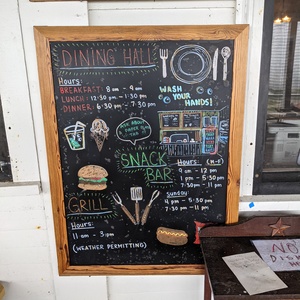 DINING HALL
Hours:
BREAKFAST: 8 am - 9 am
LUNCH: 12:30 pm - 1:30 pm
DINNER: 6:30 pm - 7:30 pm
WASH YOUR
HANDS!
SNACK
BAR
Hours: (M-F)
9 am - 12 pm
1 pm - 5:30 pm
7:30 pm - 11 pm
Sunday:
4 pm - 5:30 pm
7:30 pm - 11 pm
GRILL
Hours:
11 am - 3 pm
(WEATHER PERMITTING)
NO